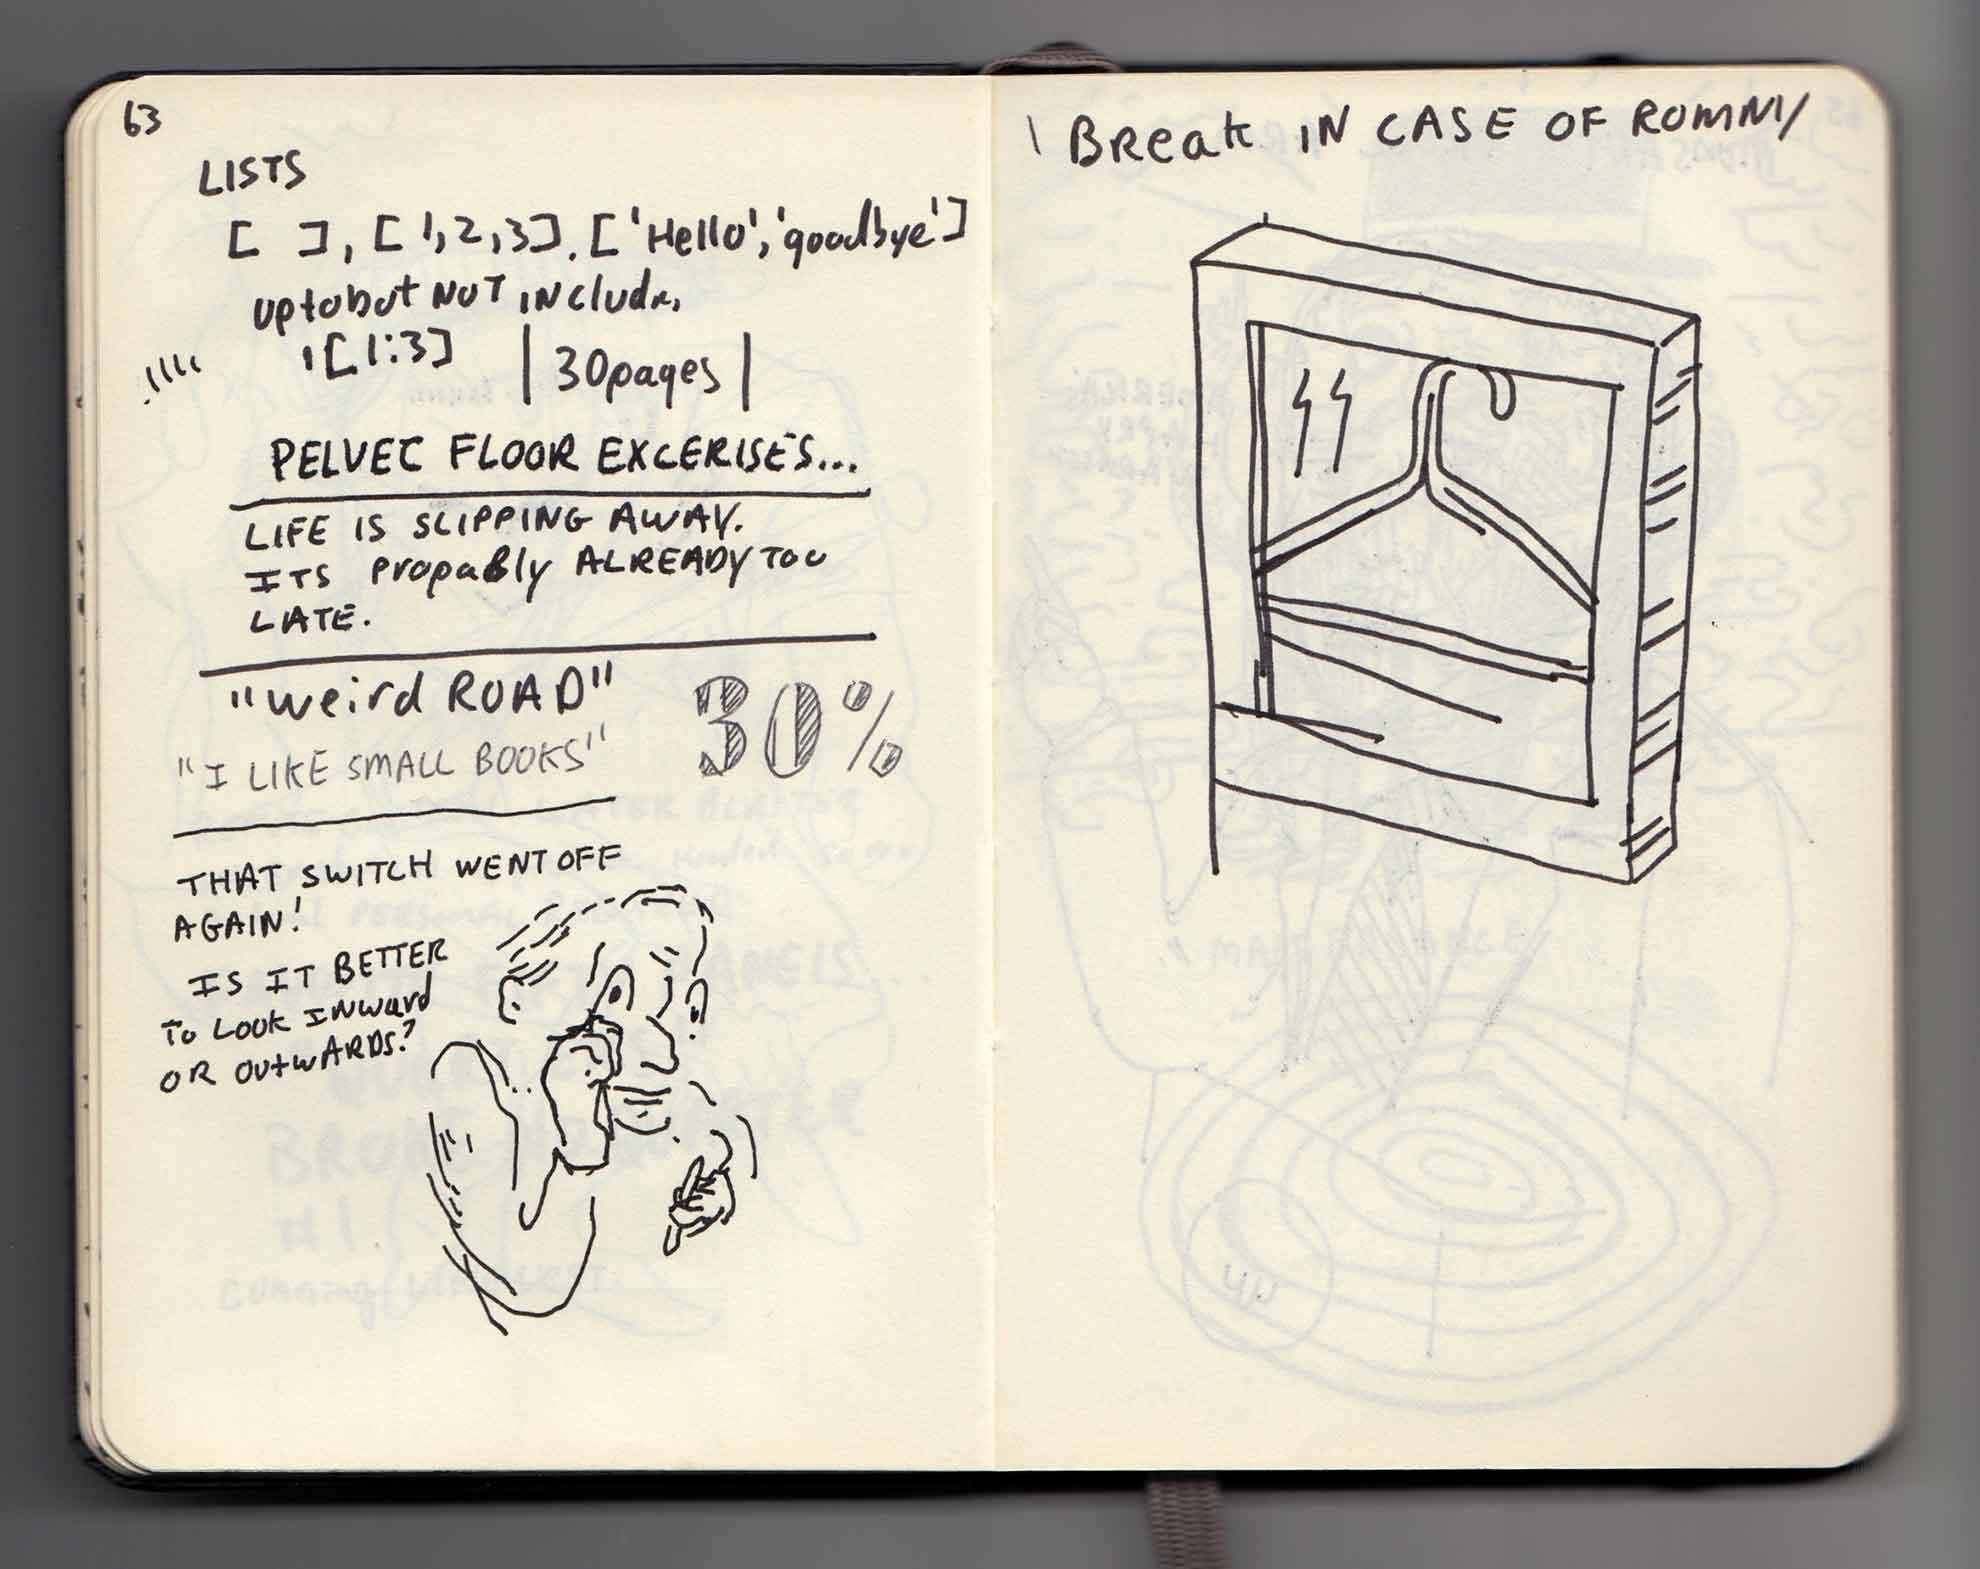 63
LISTS
[ ], [1,2,3], ['Hello','goodbye']
up to but NOT include,
1[1:3] | 30pages |
PELVEC FLOOR EXCERISES...
LIFE IS SLIPPING AWAY.
ITS PropaBly ALREADY TOO
LATE.
"Weird ROAD"
30%
"I LIKE SMALL BOOKS"
THAT SWITCH WENT OFF
AGAIN!
IS IT BETTER
To LOOK INWard
OR OutWARDS?
Break IN CASE OF ROMNY